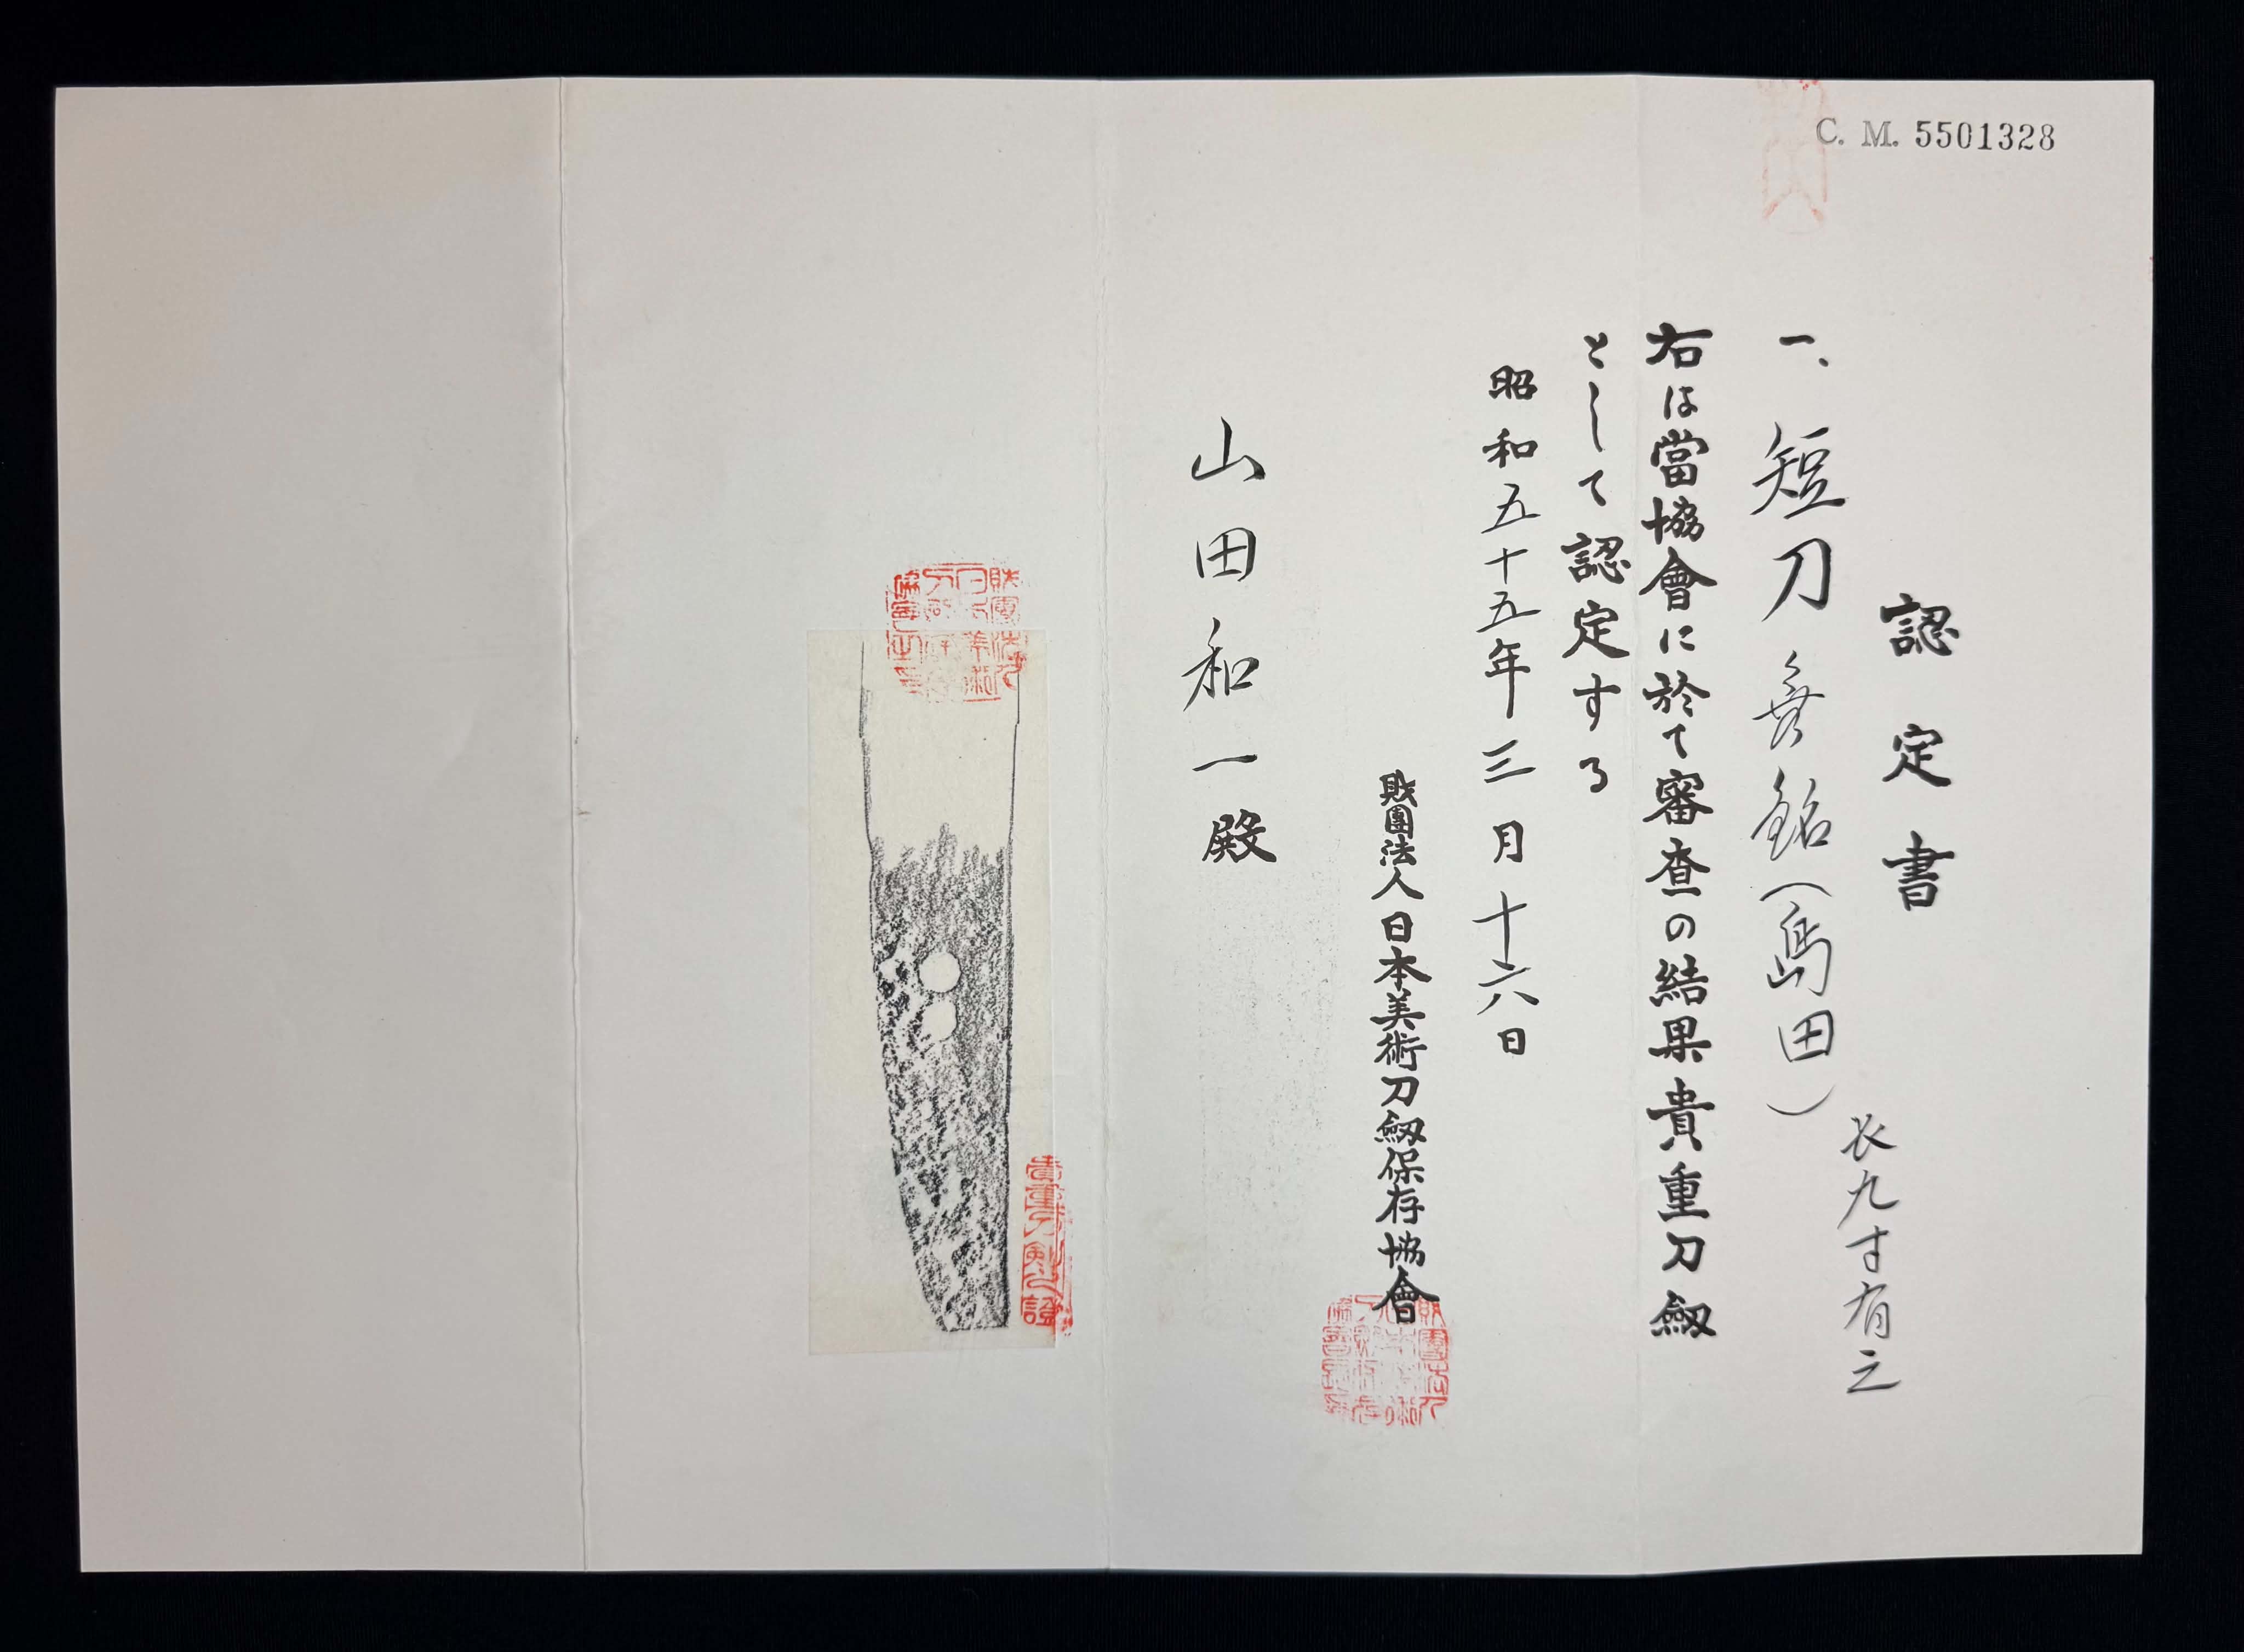 C. M. 5501328
認定書
一、短刀 無銘(島田)
長九寸有之
右は當協會に於て審査の結果貴重刀劔
として認定する
昭和五十五年三月十六日
財團法人日本美術刀劔保存協會
山田和一殿
貴重刀剣之證